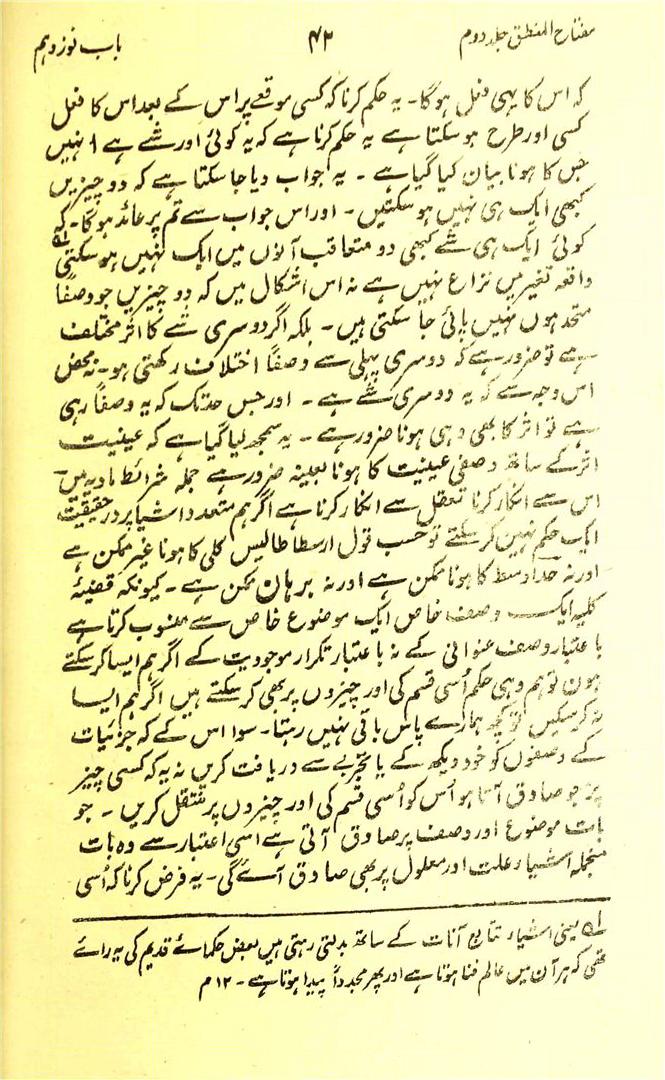 مفتاح المنطق جلد دوم
۴۲
باب نوزدہم
کہ اس کا یہی فعل ہو گا۔ یہ حکم کرنا کہ کسی موقعے پر اس کے بعد اس کا فعل
کسی اور طرح ہو سکتا ہے یہ حکم کرنا ہے کہ یہ کوئی اور شے ہے نہیں
جس کا ہونا بیان کیا گیا ہے ۔ یہ جواب دیا جا سکتا ہے کہ دو چیزیں
کبھی ایک ہی نہیں ہو سکتیں۔ اور اس جواب سے تم پر عائد ہو گا۔ کہ
کوئی ایک ہی شے کبھی دو متعاقب آنوں میں ایک نہیں ہو سکتی لہ
واقعہ تغیر میں نزاع نہیں ہے نہ اس اشکال میں کہ دو چیزیں جو وصفاً
متحد ہوں نہیں پائی جا سکتی ہیں۔ بلکہ اگر دوسری شے کا اثر مختلف
ہے تو ضرور ہے کہ دوسری پہلی سے وصفاً اختلاف رکھتی ہو۔ نہ محض
اس وجہ سے کہ یہ دوسری شے ہے ۔ اور جس حد تک کہ یہ وصفاً رہی
ہے تو اثر کا بھی وہی ہونا ضرور ہے ۔ یہ سمجھ لیا گیا ہے کہ عینیت
اثر کے ساتھ وصفی عینیت کا ہونا بعینہ ضرور ہے جملہ شرائط مادیہ میں
اس سے انکار کرنا تعقل سے انکار کرنا ہے اگر ہم متعدد اشیا پر درحقیقت
ایک حکم نہیں کر سکتے تو حسب قول ارسطاطالیس کلی کا ہونا غیر ممکن ہے
اور نہ حد اوسط کا ہونا ممکن ہے اور نہ برہان ممکن ہے ۔ کیونکہ قضیۂ
کلیہ ایک وصف خاص ایک موضوع خاص سے منسوب کرتا ہے
باعتبار وصف عنوانی کے نہ باعتبار تکرار موجودیت کے اگر ہم ایسا کر سکتے
ہوں تو ہم وہی حکم اُسی قسم کی اور چیزوں پر بھی کر سکتے ہیں اگر ہم ایسا
نہ کر سکیں تو کچھ ہمارے پاس باقی نہیں رہتا۔ سوا اس کے کہ جزئیات
کے وصفوں کو خود دیکھ کے یا تجربے سے دریافت کریں نہ یہ کہ کسی چیز
پر جو صادق آتا ہو اُس کو اُسی قسم کی اور چیزوں پر منتقل کریں ۔ جو
بات موضوع اور وصف پر صادق آتی ہے اسی اعتبار سے وہ بات
منجملہ اشیا علت اور معلول پر بھی صادق آئے گی۔ یہ فرض کرنا کہ اُسی
لہ یعنی اشیاء تتابع آنات کے ساتھ بدلتی رہتی ہیں بعض حکمائے قدیم کی یہ رائے
تھی کہ ہر آن میں عالم فنا ہوتا ہے اور پھر مجدداً پیدا ہوتا ہے ۔ ۱۲ م